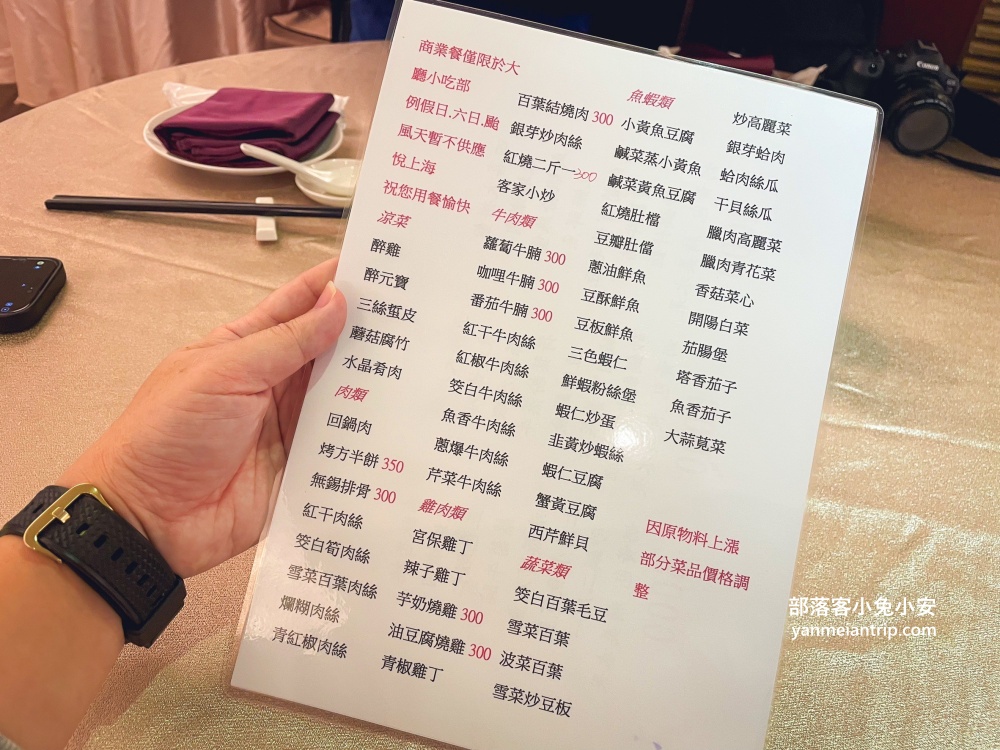 商業餐僅限於大
廳小吃部
例假日.六日.颱
風天暫不供應
悅上海
祝您用餐愉快
凉菜
醉雞
醉元寶
三絲蜇皮
蘑菇腐竹
水晶肴肉
肉類
回鍋肉
烤方半餅 350
無錫排骨 300
紅干肉絲
筊白筍肉絲
雪菜百葉肉絲
爛糊肉絲
青紅椒肉絲
百葉結燒肉 300
銀芽炒肉絲
紅燒二斤一 300
客家小炒
牛肉類
蘿蔔牛腩 300
咖哩牛腩 300
番茄牛腩 300
紅干牛肉絲
紅椒牛肉絲
筊白牛肉絲
魚香牛肉絲
蔥爆牛肉絲
芹菜牛肉絲
雞肉類
宮保雞丁
辣子雞丁
芋奶燒雞 300
油豆腐燒雞 300
青椒雞丁
魚蝦類
小黃魚豆腐
鹹菜蒸小黃魚
鹹菜黃魚豆腐
紅燒肚檔
豆瓣肚儅
蔥油鮮魚
豆酥鮮魚
豆板鮮魚
三色蝦仁
鮮蝦粉絲煲
蝦仁炒蛋
韭黃炒蝦絲
蝦仁豆腐
蟹黃豆腐
西芹鮮貝
蔬菜類
筊白百葉毛豆
雪菜百葉
波菜百葉
雪菜炒豆板
炒高麗菜
銀芽蛤肉
蛤肉絲瓜
干貝絲瓜
臘肉高麗菜
臘肉青花菜
香菇菜心
開陽白菜
茄腸煲
塔香茄子
魚香茄子
大蒜莧菜
因原物料上漲
部分菜品價格調
整
Canon
部落客小兔小安
yanmeiantrip.com